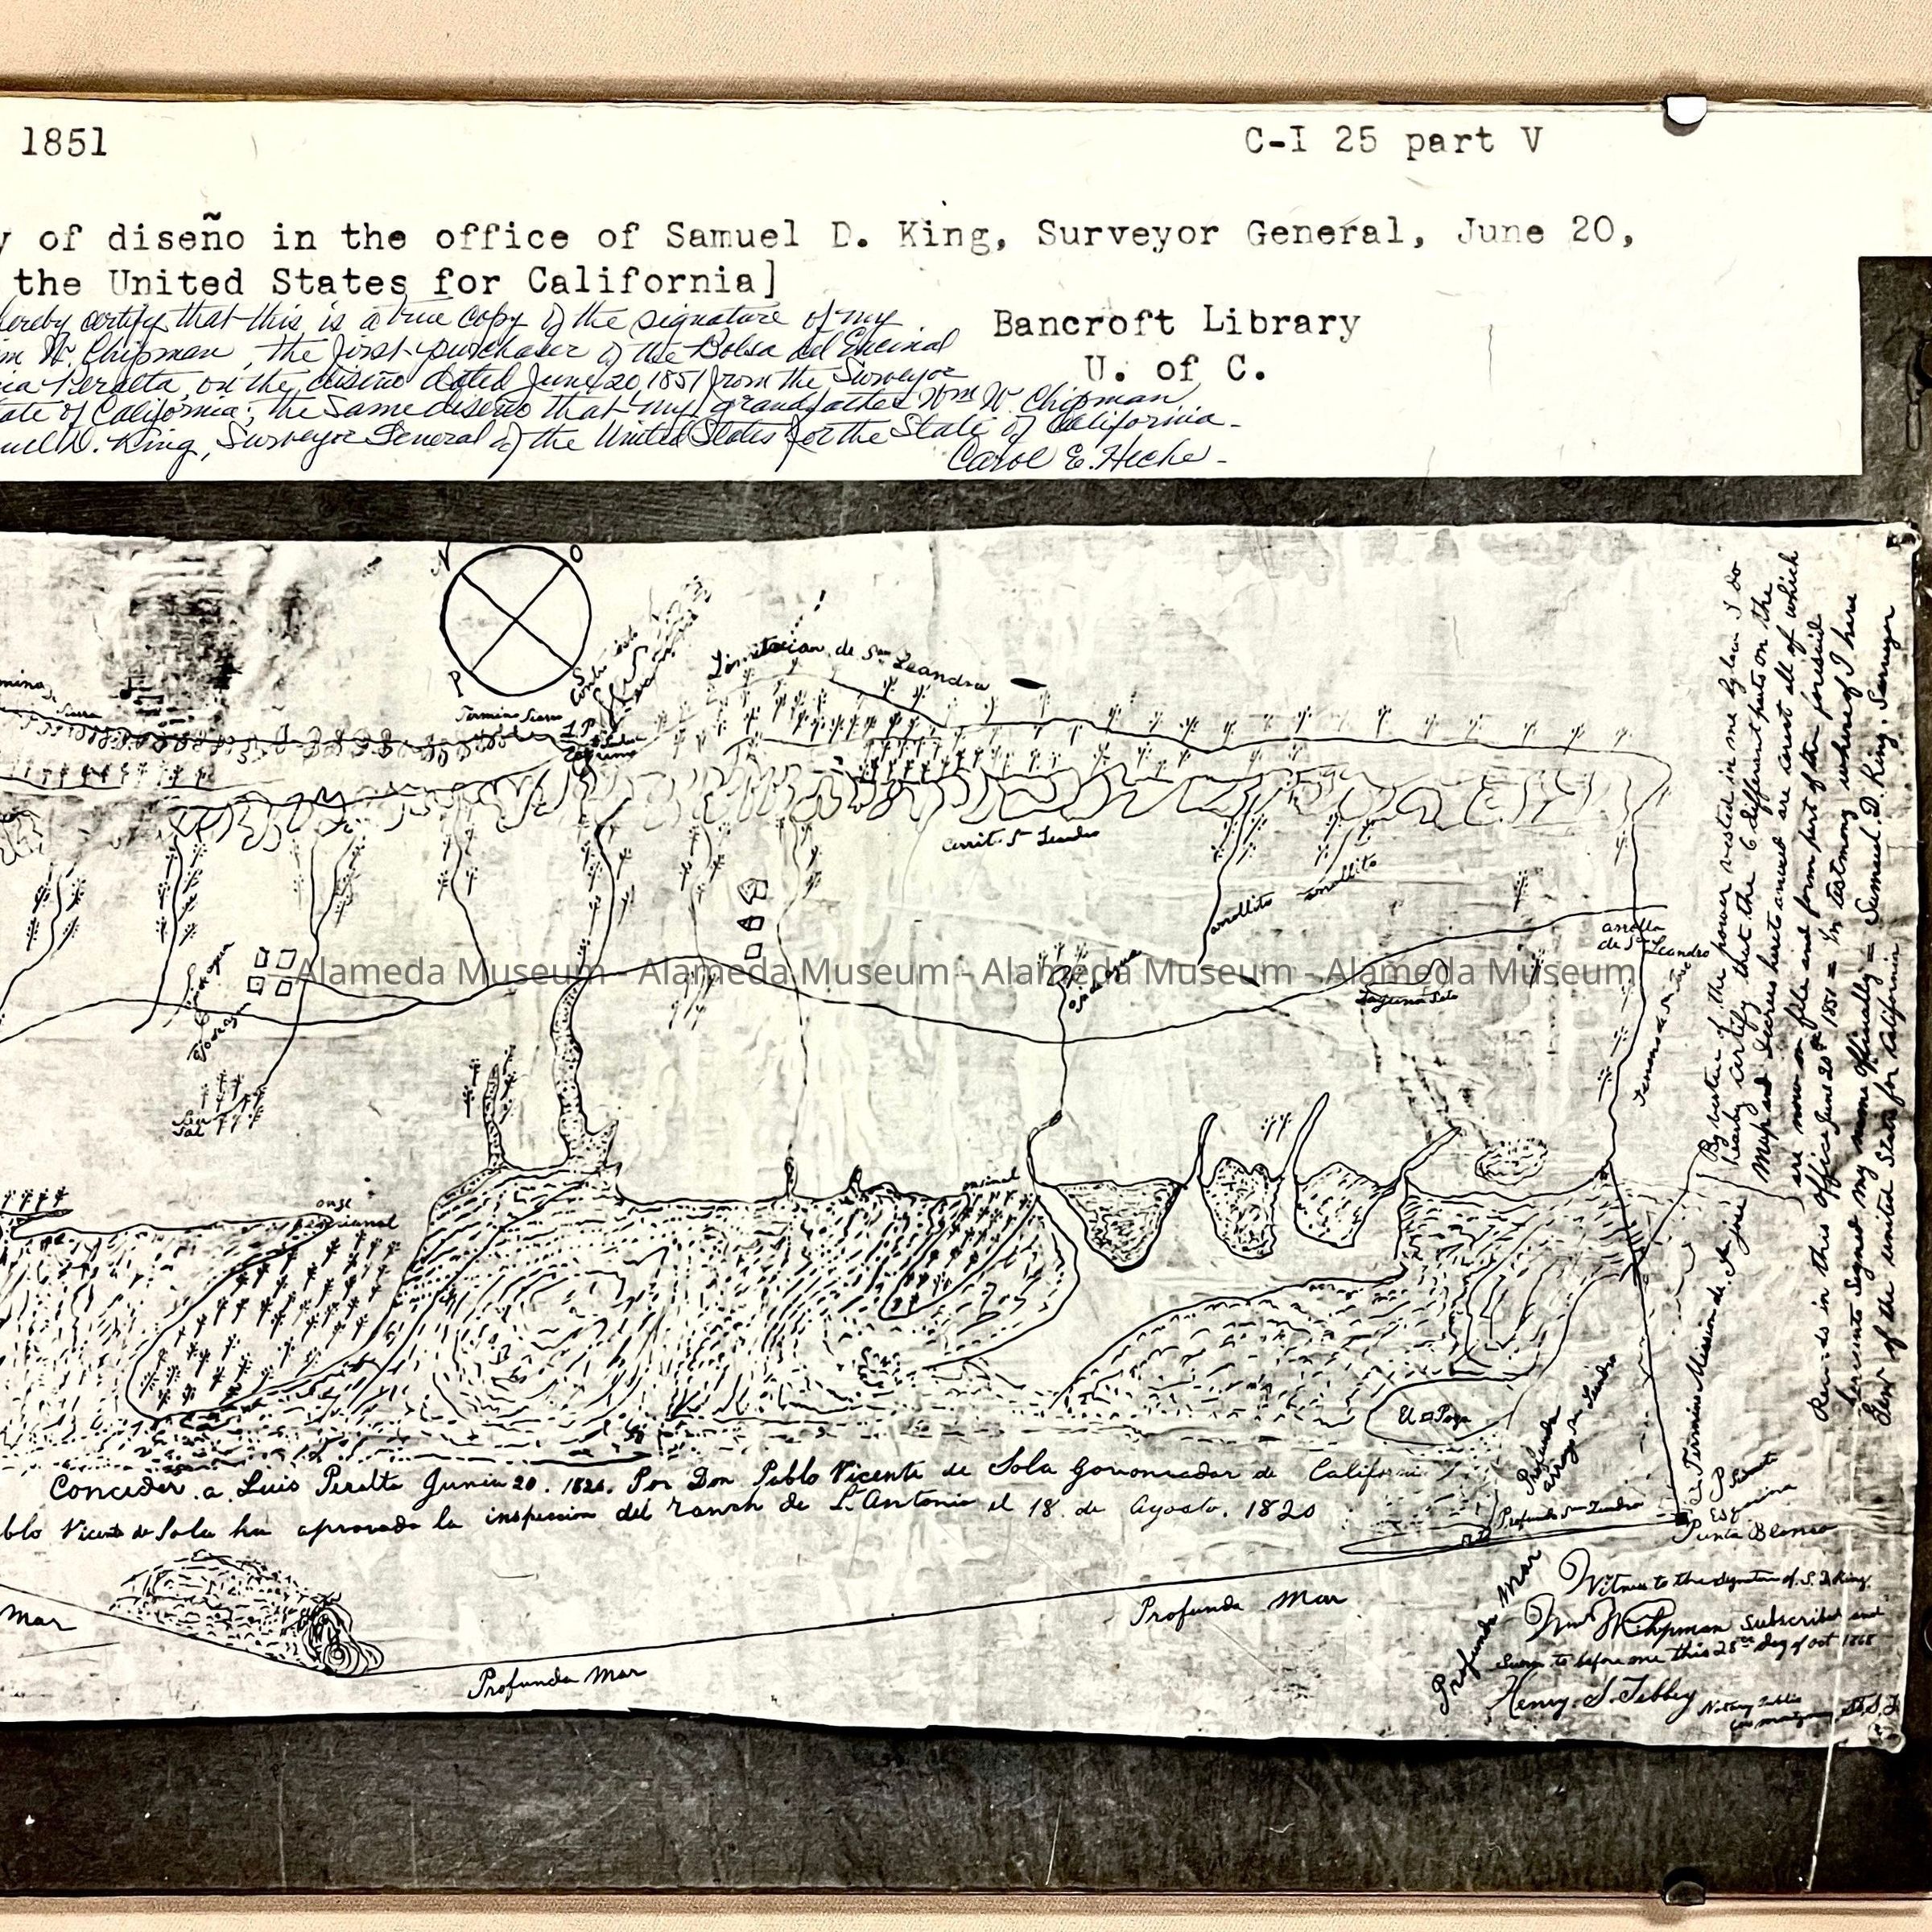 1851
C-I 25 part V
y of diseño in the office of Samuel D. King, Surveyor General, June 20,
the United States for California]
Bancroft Library
U. of C.
hereby certify that this is a true copy of the signature of my
m W. Chipman, the first purchaser of the Bolsa del Encinal
ia Peralta, on the diseño dated June 20, 1851 from the Surveyor
ate of California; the same diseño that my grandfather Wm W. Chipman
uel D. King, Surveyor General of the United States for the State of California -
Carol E. Heche -
N O
P S
Limitacion de Sn Leandro
Termino Sierra
de Sierra
Cerrit. Sn Leandro
arrollito arrollito
ojo de agua
Laguna Seca
arrollo
de Sn Leandro
Sau
Sal
onse
encinal
Alameda Museum - Alameda Museum - Alameda Museum - Alameda Museum
Conceder a Luis Peralta Juniu 20. 1820. Por Don Pablo Vicente de Sola Governador de California
blo Vicente de Sola ha aprovada la inspeccion del ranch de S. Antonio el 18 de Agosto. 1820
Mar
Profunda Mar
Profunda Mar
Profunda Mar
Profunda
arroyo Sn Leandro
Profunda Sn Leandro
Es Termino Mission de Sn José
Esquina
Punta Blanca
By virtue of the power vested in me by law I do
hereby certify that the 6 different parts on the
Map and decrees hereto annexed are correct all of which
are now on file and form part of the foresaid
Records in this office June 20th 1851 = In testimony whereof I have
hereunto Signed my name Officially = Samuel D. King. Surveyor
Genl of the united States for California
Witness to the signature of S. D. King.
Wm W Chipman Subscribed and
Sworn to before me this 28th day of Oct 1868
Henry. S. Tebbey Notary Public